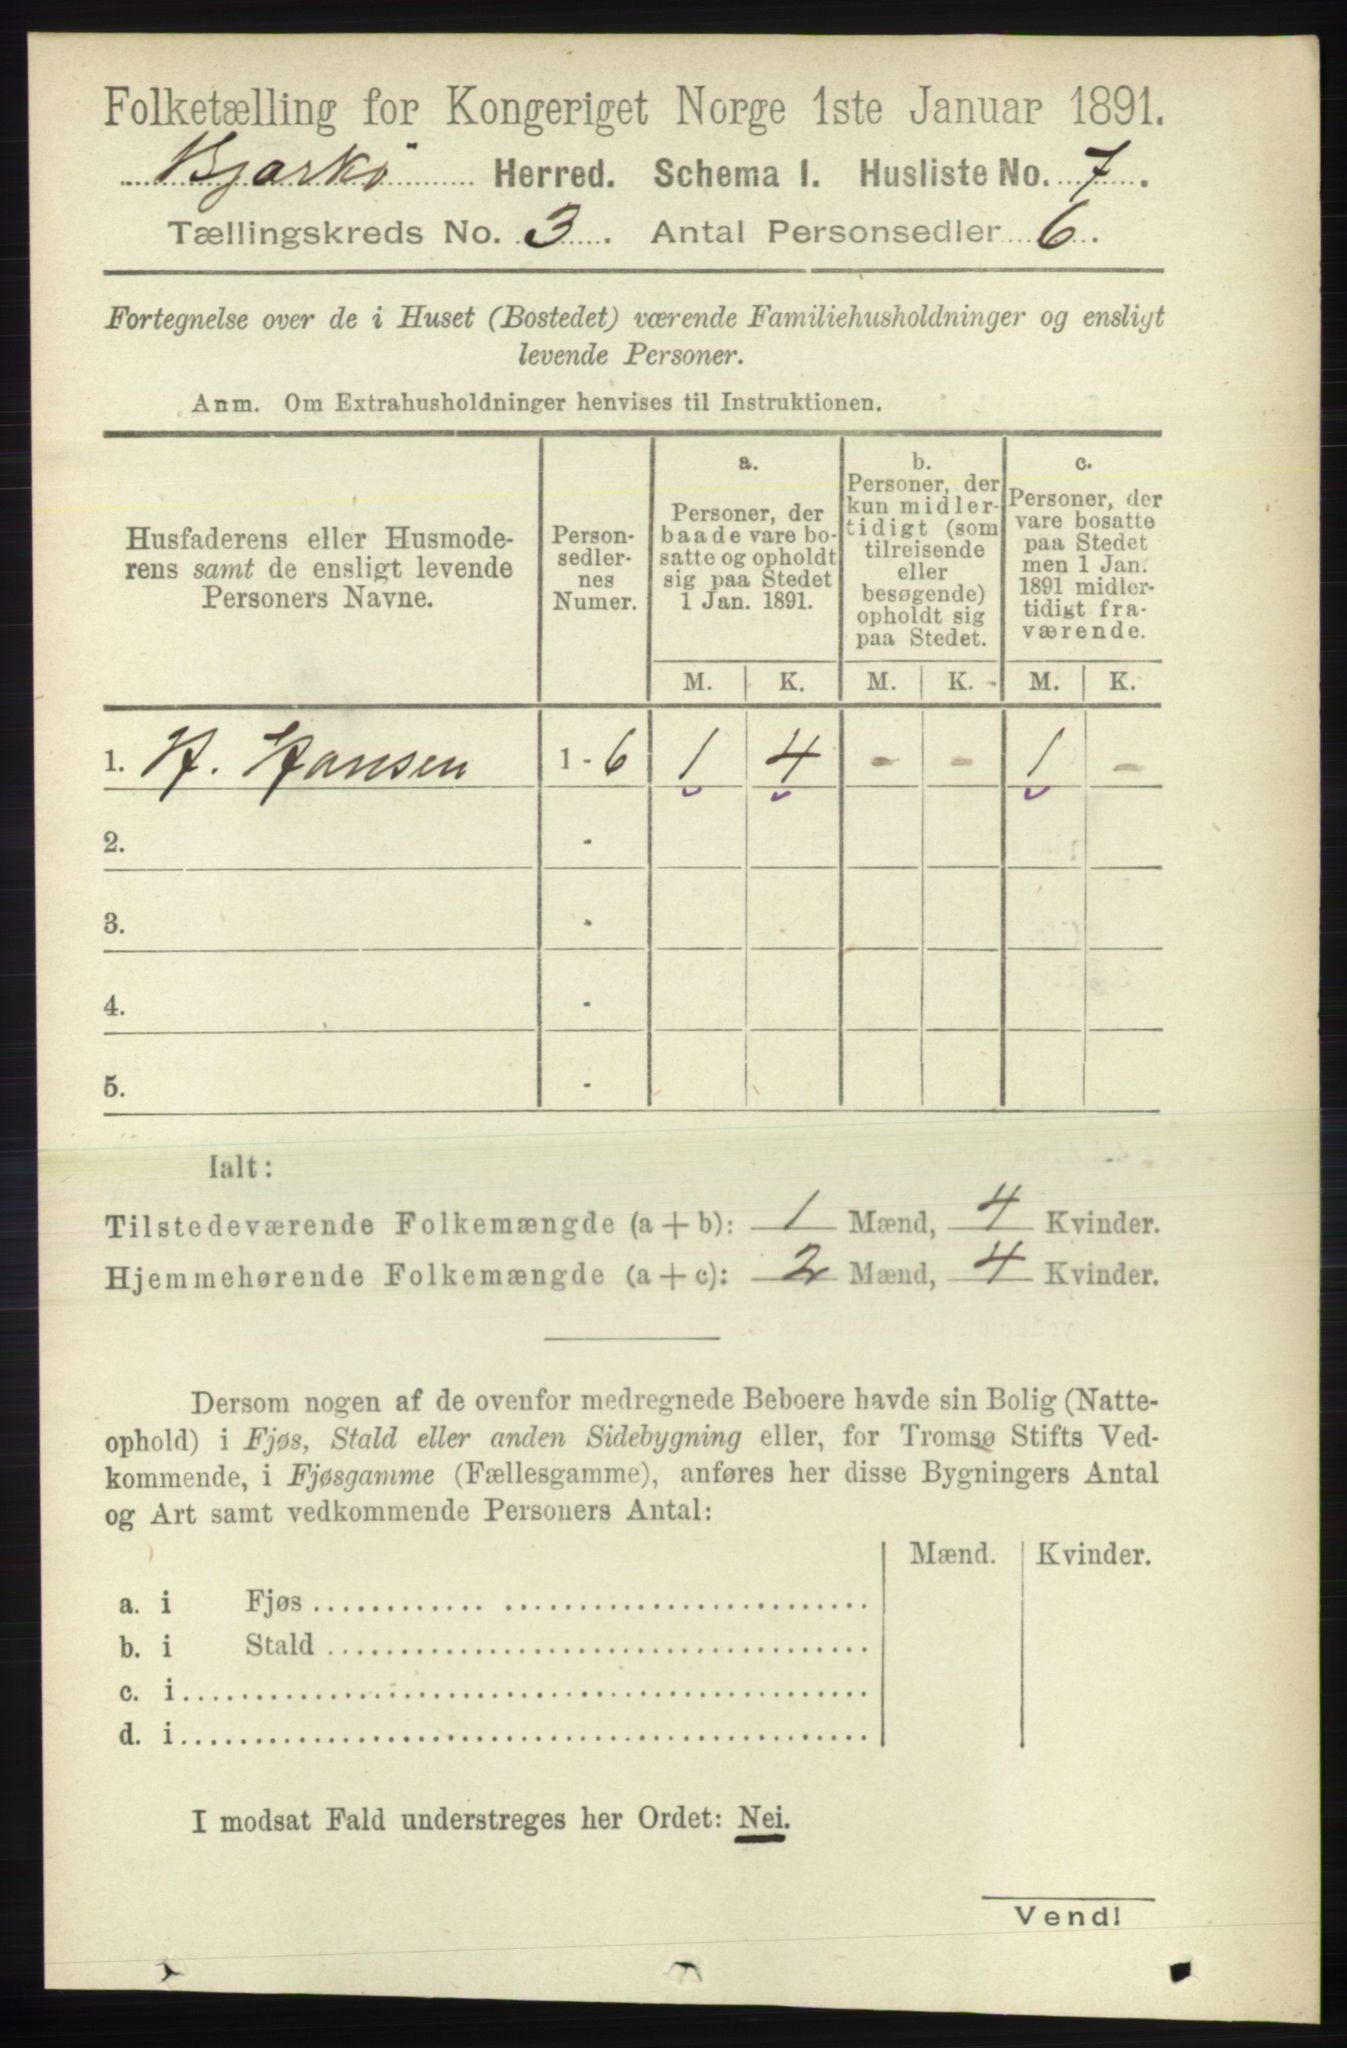 Folketælling for Kongeriget Norge 1ste Januar 1891.
Bjarkö Herred. Schema I. Husliste No. 7.
Tællingskreds No. 3. Antal Personsedler 6.
Fortegnelse over de i Huset (Bostedet) værende Familiehusholdninger og ensligt
levende Personer.
Anm. Om Extrahusholdninger henvises til Instruktionen.
Husfaderens eller Husmode-
rens samt de ensligt levende
Personers Navne.
Person-
sedler-
nes
Numer.
a.
Personer, der
baade vare bo-
satte og opholdt
sig paa Stedet
1 Jan. 1891.
b.
Personer, der
kun midler-
tidigt (som
tilreisende
eller
besøgende)
opholdt sig
paa Stedet.
c.
Personer, der
vare bosatte
paa Stedet
men 1 Jan.
1891 midler-
tidigt fra-
værende.
M. K. M. K. M. K.
1. H. Hansen 1 - 6 1 4 - - 1 -
2. -
3. -
4. -
5. -
Ialt:
Tilstedeværende Folkemængde (a + b): 1 Mænd, 4 Kvinder.
Hjemmehørende Folkemængde (a + c): 2 Mænd, 4 Kvinder.
Dersom nogen af de ovenfor medregnede Beboere havde sin Bolig (Natte-
ophold) i Fjøs, Stald eller anden Sidebygning eller, for Tromsø Stifts Ved-
kommende, i Fjøsgamme (Fællesgamme), anføres her disse Bygningers Antal
og Art samt vedkommende Personers Antal:
Mænd. Kvinder.
a. i Fjøs
b. i Stald
c. i
d. i
I modsat Fald understreges her Ordet: Nei.
Vend!